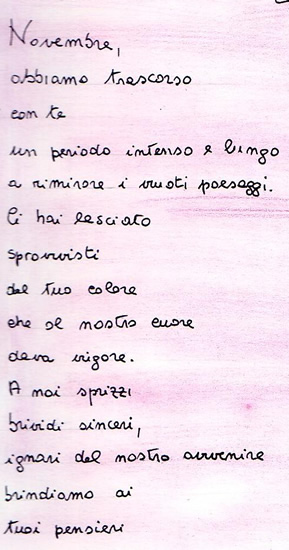 Novembre,
abbiamo trascorso
con te
un periodo intenso e lungo
a rimirare i vuoti paesaggi.
Ci hai lasciato
sprovvisti
del tuo calore
che al nostro cuore
dava vigore.
A noi sprizzi
brividi sinceri,
ignari del nostro avvenire
brindiamo ai
tuoi pensieri